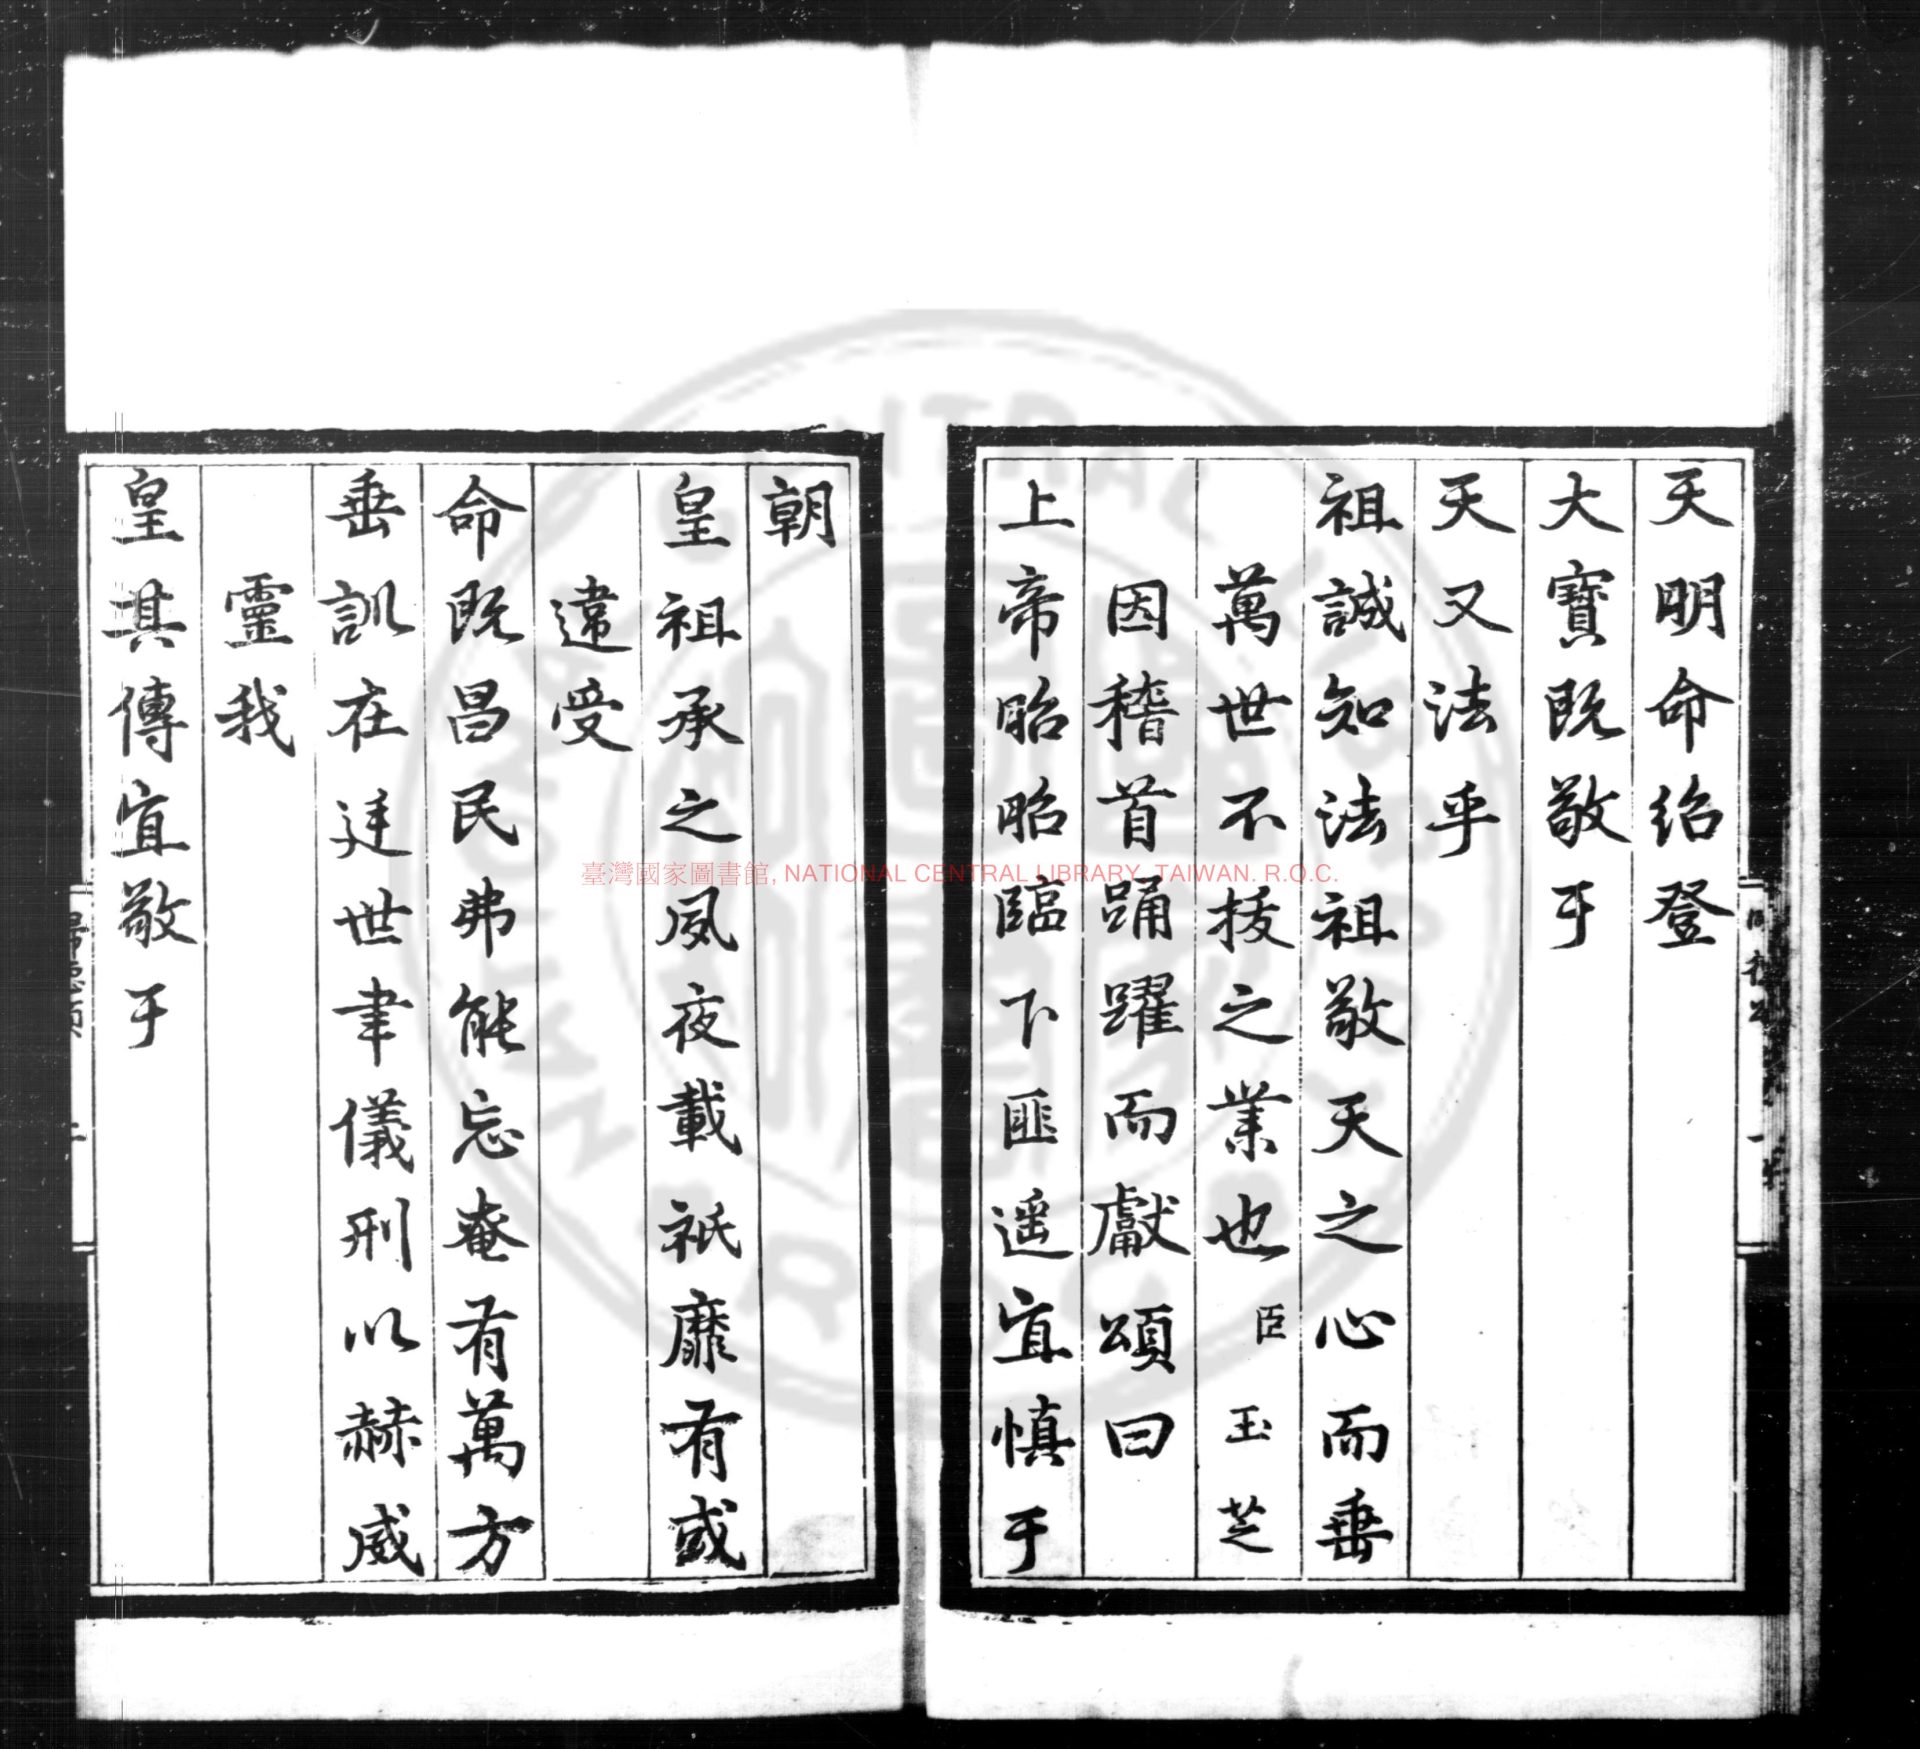 天明命紹登
大寶既敬于
天又法乎
祖誠知法祖敬天之心而垂
萬世不拔之業也臣玉芝
因稽首踊躍而獻頌曰
上帝昭昭臨下匪遥宜慎于
朝
皇祖承之夙夜載祇靡有或
違受
命既昌民弗能忘奄有萬方
垂訓在廷世聿儀刑以赫威
靈我
皇其傳宜敬于
臺灣國家圖書館, NATIONAL CENTRAL LIBRARY, TAIWAN. R.O.C.